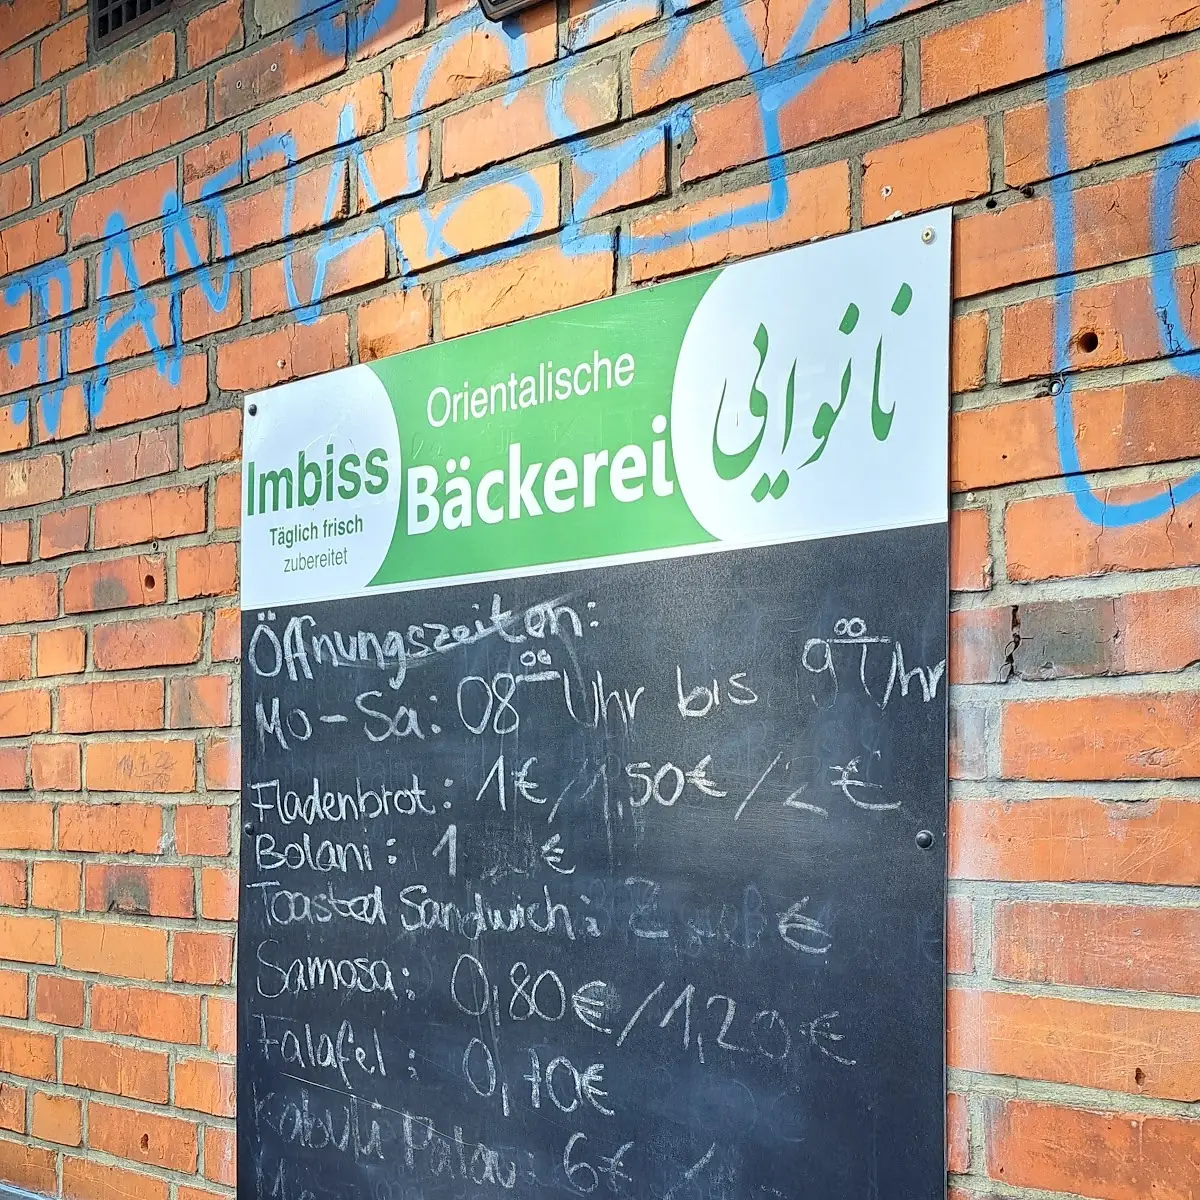 Imbiss
Täglich frisch
zubereitet
Orientalische
Bäckerei
نانوایی
Öffnungszeiten:
Mo-Sa: 08⁰⁰ Uhr bis 9⁰⁰ Uhr
Fladenbrot: 1€/1,50€/2€
Bolani: 1 €
Toasted Sandwich: 2 €
Samosa: 0,80€/1,20€
Falafel: 0,70€
Kabuli Palau: 6€ /